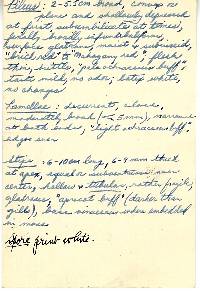 Pileus: 2-5.5cm broad, convex to
plane and shallowly depressed
at first, subumbilicate at times,
finally broadly infundibuliform,
surface glabrous, moist or subviscid,
"brick red" to "Mahogany red", flesh
thin, brittle, "pale ochraceous buff"
taste mild, no odor, latex white,
no changes
Lamellae: decurrent, close,
moderately broad (- 5mm), narrowed
at both ends, "light ochraceous buff"
edges even
Stipe: 6-10cm long, 6-9 mm thick
at apex, equal or
center, hollow + tubular, rather fragile,
glabrous, "apricot buff" (darker than
gills), base when embedded
in moss
Spore print white.